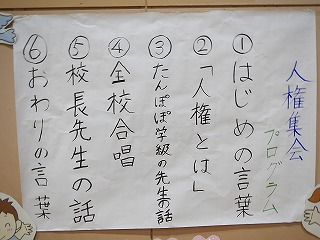 人権集会
プログラム
①はじめの言葉
②「人権とは」
③たんぽぽ学級の先生の話
④全校合唱
⑤校長先生の話
⑥おわりの言葉